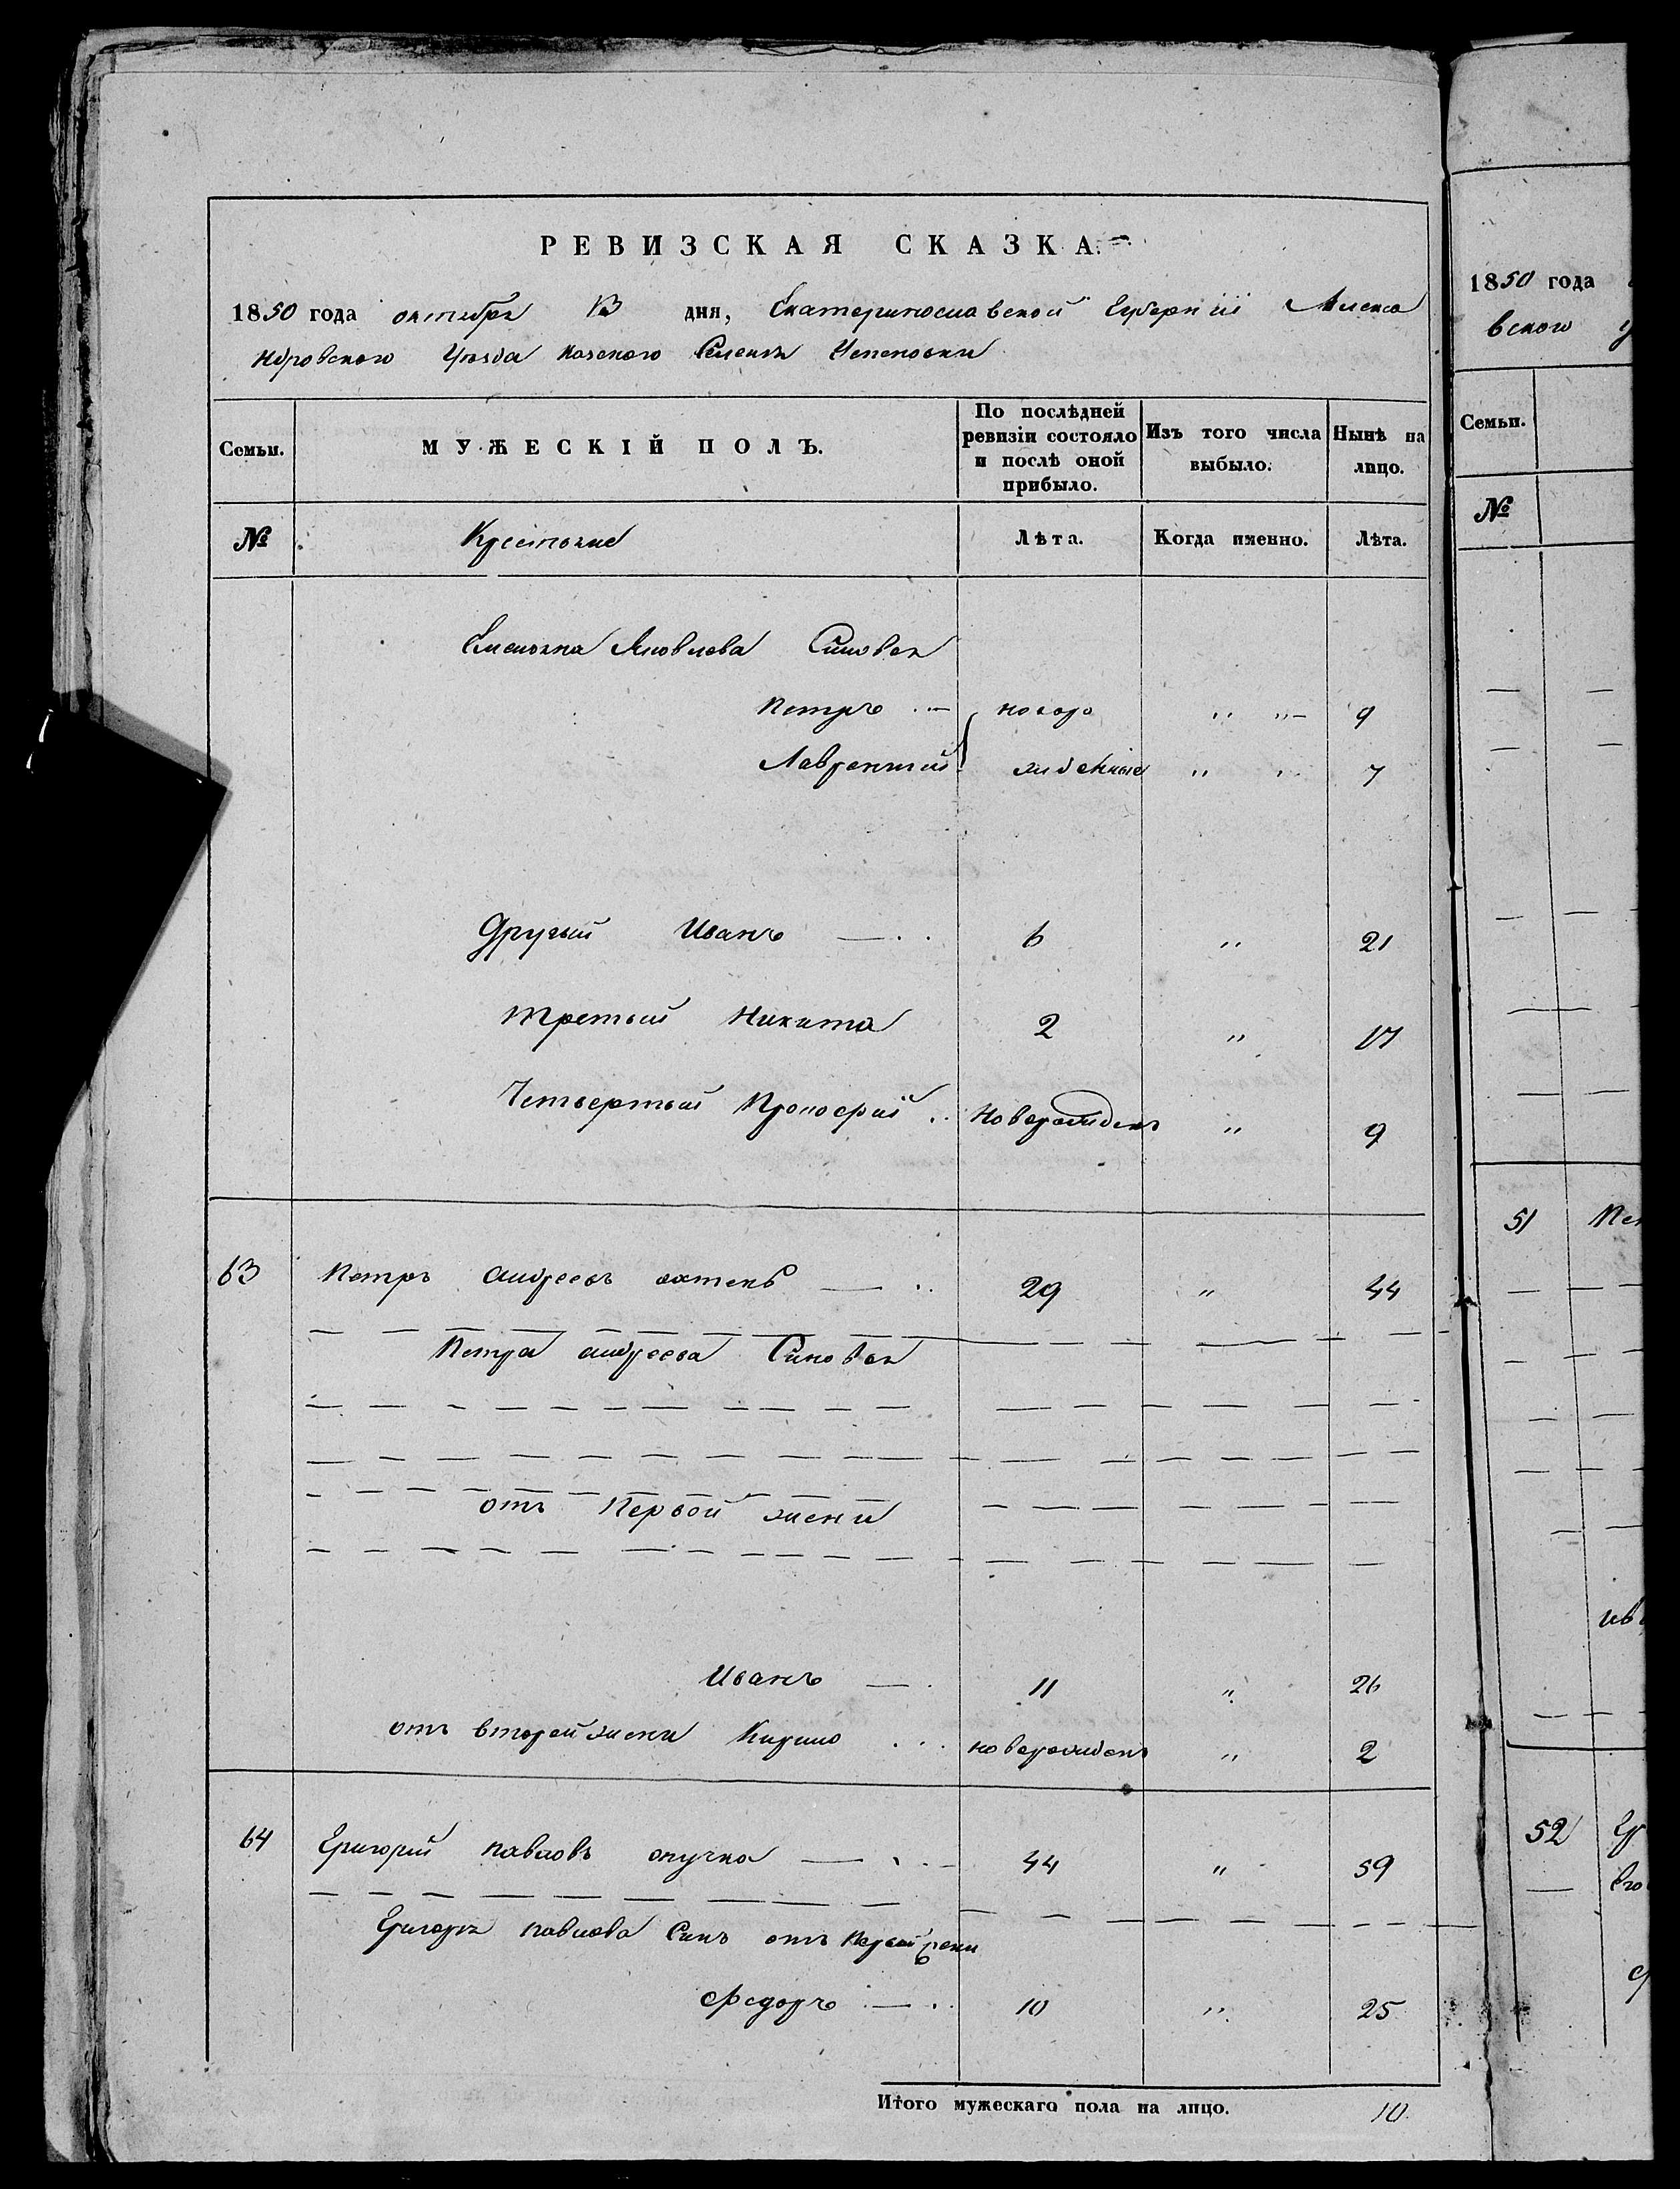 РЕВИЗСКАЯ СКАЗКА.
1850 года октября 13 дня, Екатеринославской Губерніи Алекса
ндровского Уѣзда казеного Селенія Успеновки
Семьи. МУЖЕСКІЙ ПОЛЪ. По послѣдней ревизіи состояло и послѣ оной прибыло. Изъ того числа выбыло. Нынѣ на лицо.
№ Крестьяне Лѣта. Когда именно. Лѣта.
Емельяна Яковлева Сыновья
Петръ новоро " " 9
Лаврентий жденные " " 7
Другий Иванъ 6 " 21
третий Никита 2 " 17
Четвертый Прокофий Новорожденъ " 9
63 Петръ андреевъ 29 " 44
Петра андреева Сыновья
отъ Первой жены
Иванъ 11 " 26
отъ второй жены Кирило новорожденъ " 2
64 Григорий павловъ 44 " 59
Григория павлова Синъ отъ первой жени
Федоръ 10 " 25
Итого мужескаго пола на лицо. 10
1850 года
вского у
Семьи.
№
51 Пе
ив
52 Гр